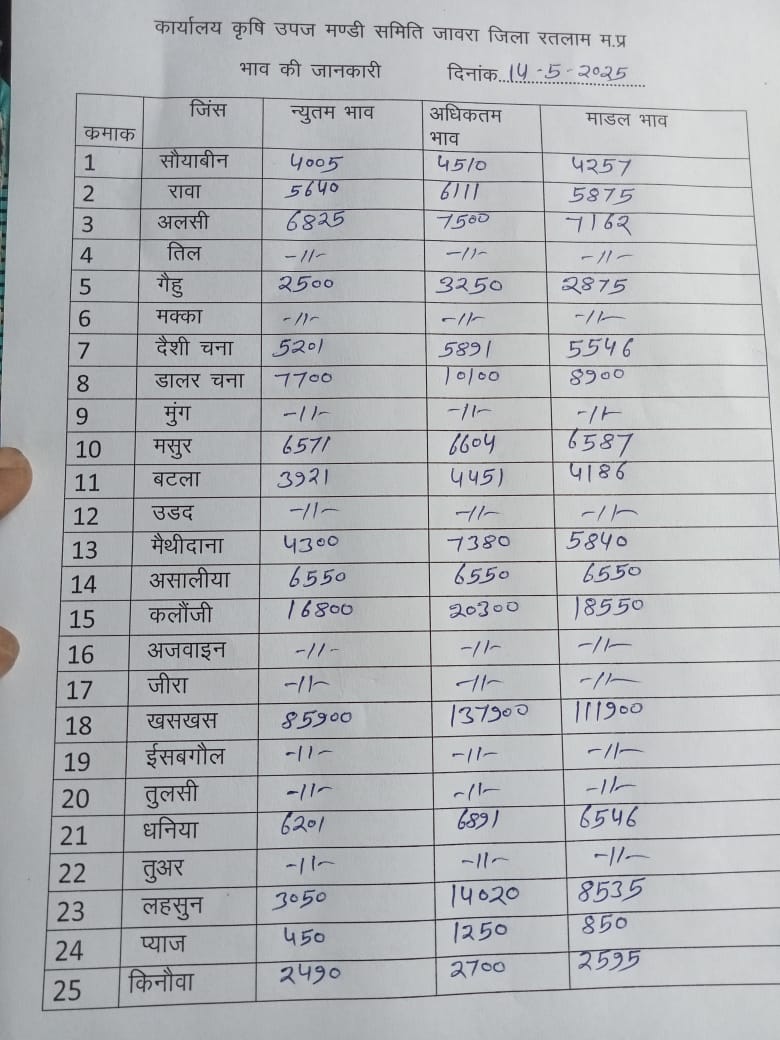 कार्यालय कृषि उपज मण्डी समिति जावरा जिला रतलाम म.प्र
भाव की जानकारी दिनांक..14-5-2025
कमाक जिंस न्युतम भाव अधिकतम भाव माडल भाव
1 सौयाबीन 4005 4510 4257
2 रावा 5640 6111 5875
3 अलसी 6825 7500 7162
4 तिल -11- -11- -11-
5 गैहु 2500 3250 2875
6 मक्का -11- -11- -11-
7 दैशी चना 5201 5891 5546
8 डालर चना 7700 10100 8900
9 मुंग -11- -11- -11-
10 मसुर 6571 6604 6587
11 बटला 3921 4451 4186
12 उडद -11- -11- -11-
13 मैथीदाना 4300 7380 5840
14 असालीया 6550 6550 6550
15 कलौंजी 16800 20300 18550
16 अजवाइन -11- -11- -11-
17 जीरा -11- -11- -11-
18 खसखस 85900 137900 111900
19 ईसबगौल -11- -11- -11-
20 तुलसी -11- -11- -11-
21 धनिया 6201 6891 6546
22 तुअर -11- -11- -11-
23 लहसुन 3050 14020 8535
24 प्याज 450 1250 850
25 किनौवा 2490 2700 2595